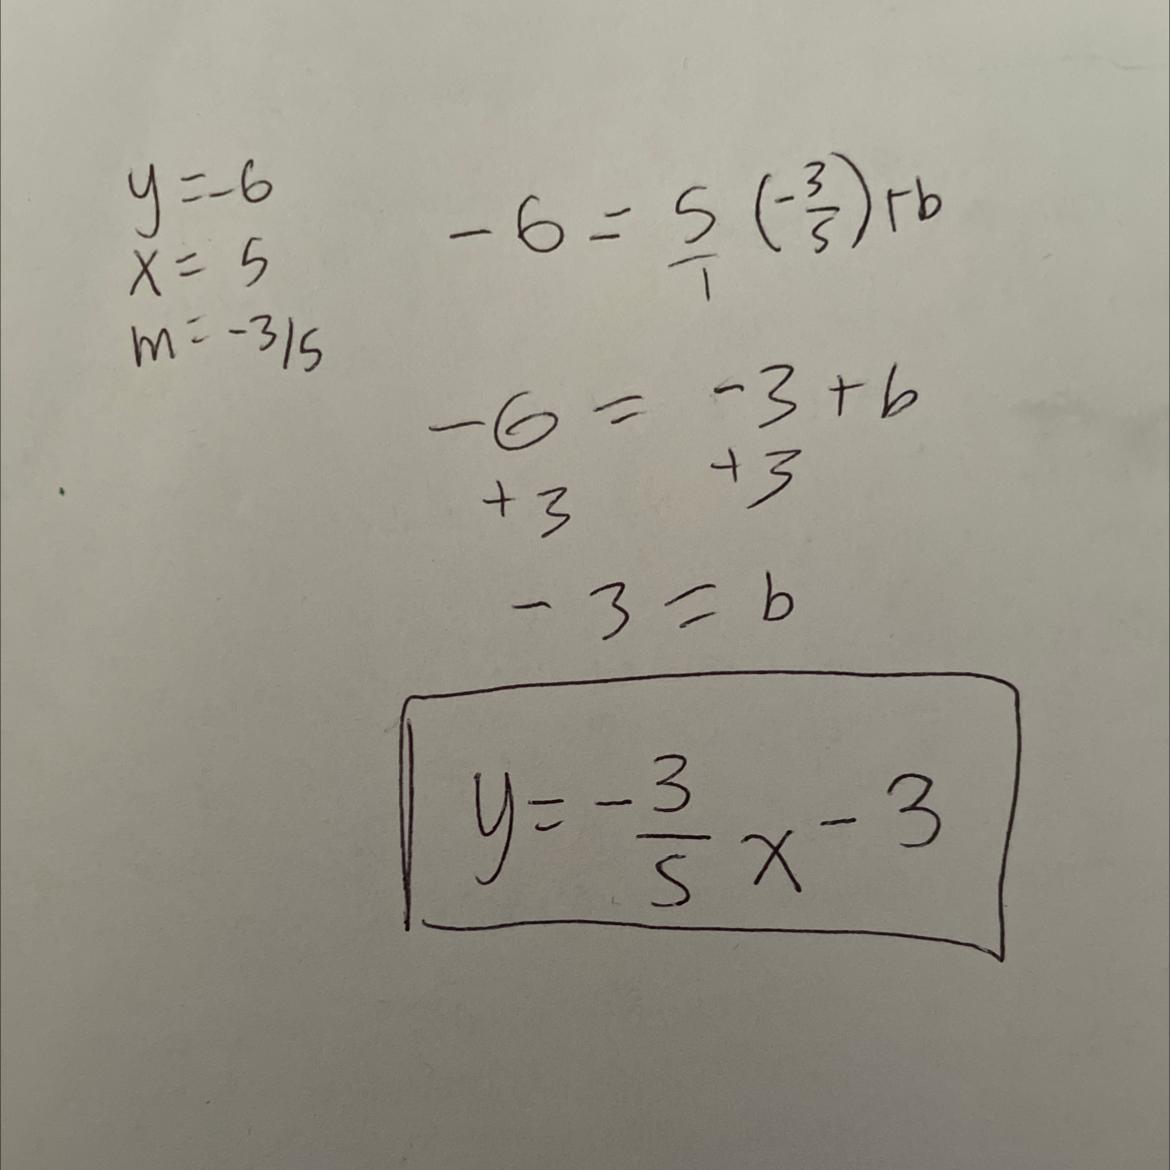 y=-6
x= 5
m= -3/5
-6 = 5/1 (-3/5)+b
-6 = -3+b
+3 +3
-3 = b
y= -3/5 x - 3